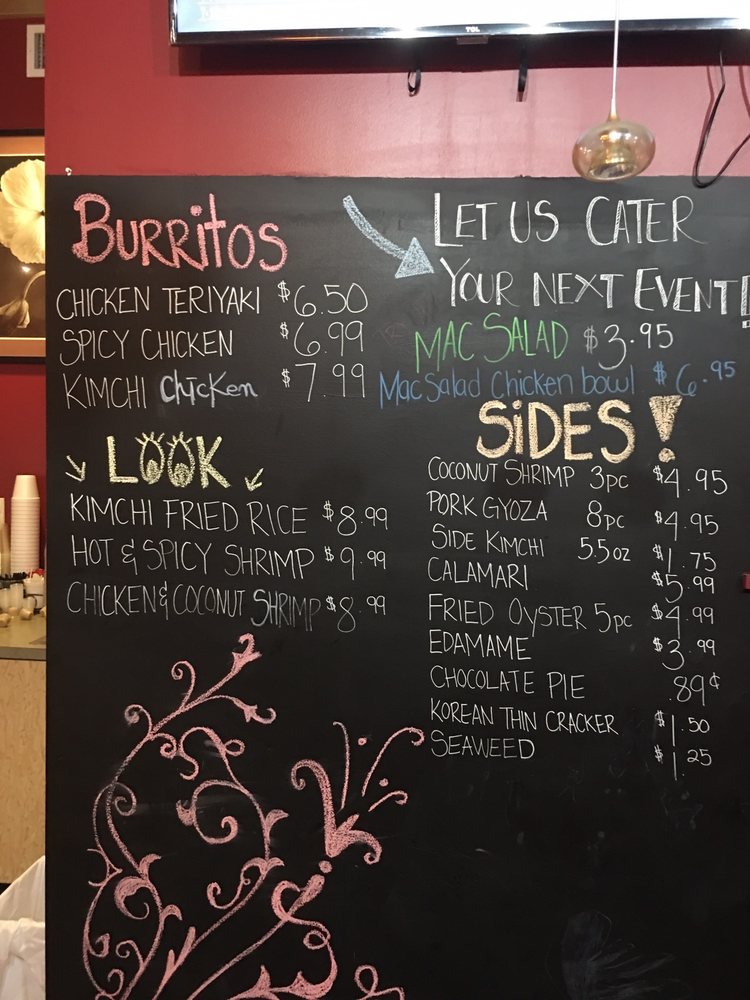 TCL
BURRitOS
CHICKEN TERIYAKI $6.50
SPICY CHICKEN $6.99
KIMCHI Chicken $7.99
LOOK
KIMCHI FRIED RICE $8.99
HOT & SPICY SHRIMP $9.99
CHICKEN & COCONUT SHRIMP $8.99
LET US CATER
YOUR NEXT EVENT!
MAC SALAD $3.95
Mac Salad Chicken bowl $6.95
SiDES!
COCONUT SHRIMP 3pc $4.95
PORK GYOZA 8pc $4.95
SIDE KIMCHI 5.5oz $1.75
CALAMARI $5.99
FRIED OYSTER 5pc $4.99
EDAMAME $3.99
CHOCOLATE PIE .89¢
KOREAN THIN CRACKER $1.50
SEAWEED $1.25